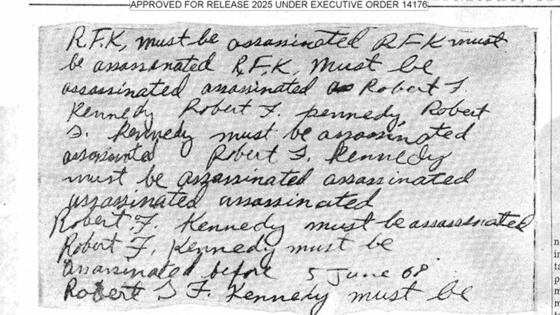 APPROVED FOR RELEASE 2025 UNDER EXECUTIVE ORDER 14176
R.F.K, must be assassinated R.F.K must
be assassinated R.F.K, Must be
assassinated assassinated Robert F.
Kennedy Robert F. pennedy, Robert
F. Kennedy must be assassinated
assassinated Robert F. Kennedy
must be assassinated assassinated
assassinated assassinated
Robert F. Kennedy must be assassinated
Robert F. Kennedy must be
assassinated before 5 June 68
Robert F. Kennedy must be